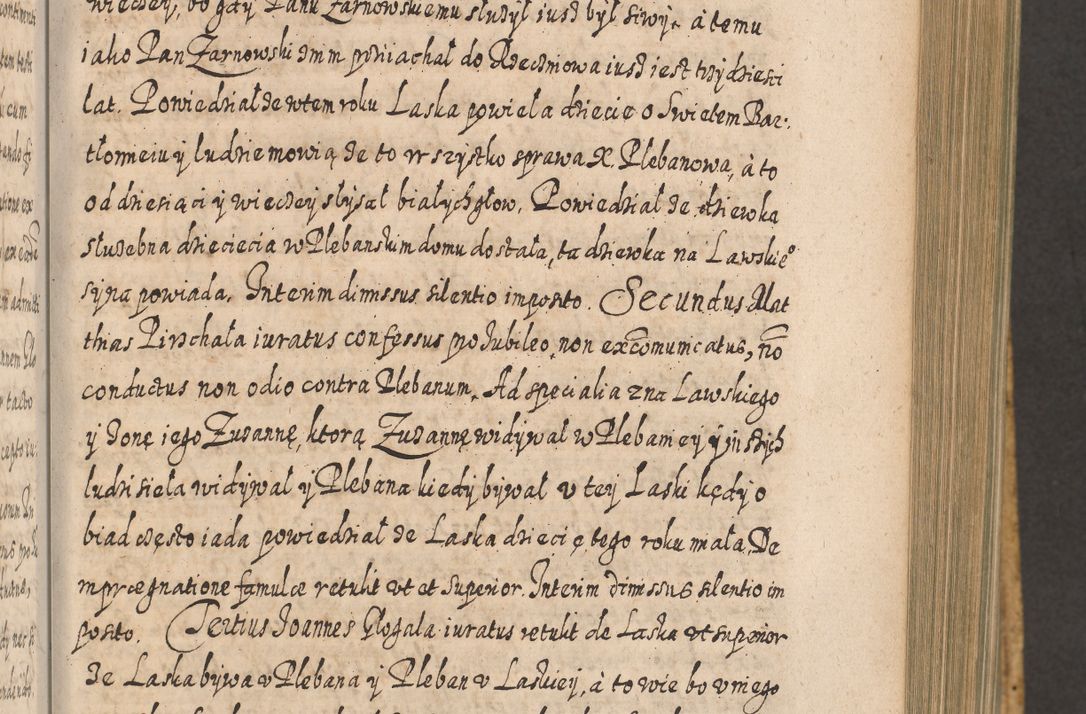 wiecżey, bo gdy Panu Zarnowskiemu służył iusz był siwy, à temu
iako Pan Zarnowski zmm przyiachał do Rzeczniowa iusz iest trzydziesci
lat. Powiedział że wtem roku Laska powiela dziecię o Swiętem Bar:
tłomieiu y ludzie mowią że to wszystko sprawa X. Plebanowa, à to
od dziesiąci y wiecżey słyszał białychgłow. Powiedział że dziewka
służebna dziecięcia w Plebanskim domu dostała, ta dziewka na Lawskieº
syna powiada. Interim dimissus silentio imposito. Secundus Mat
thias Pirschała iuratus confessus pro Jubileo, non excõmunicatus, nõ
conductus non odio contra Plebanum. Ad specialia zna Lawskiego
y żonę iego Zuzannę, ktorą Zuzannę widywał w Plebaniey y inszych
ludzi sieła widywał y Plebana kiedy bywał v tey Laski kędy o
biad często iada powiedział że Laska dziecię tego roku miała, De
imprægnatione famulæ retulit vt et Superior. Interim dimissus silentio im
posito. Tertius Joannes Głogala iuratus retulit de Laska vt superior
że Laska bywa v Plebana y Pleban v Laskiey, à to wie bo v niego